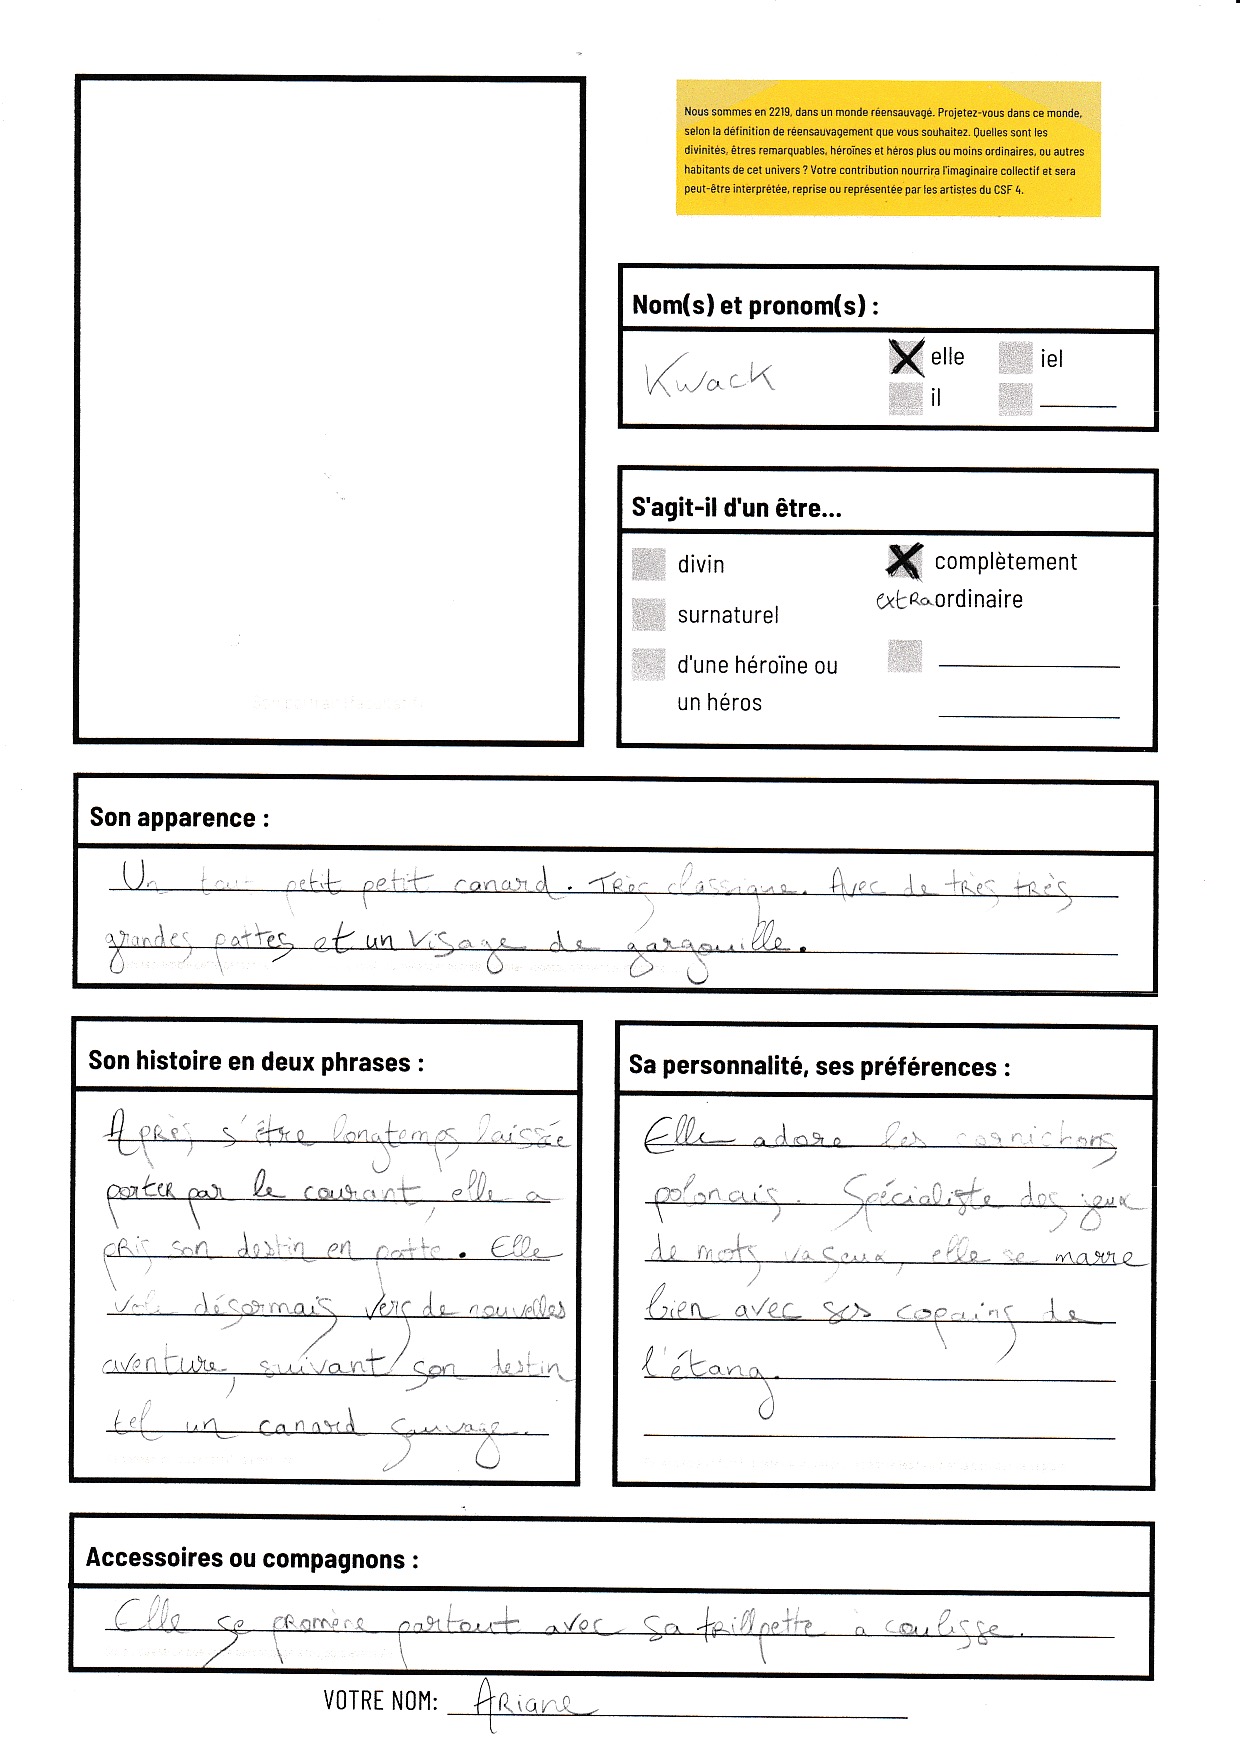 Nous sommes en 2219, dans un monde réensauvagé. Projetez-vous dans ce monde,
selon la définition de réensauvagement que vous souhaitez. Quelles sont les
divinités, êtres remarquables, héroïnes et héros plus ou moins ordinaires, ou autres
habitants de cet univers ? Votre contribution nourrira l'imaginaire collectif et sera
peut-être interprétée, reprise ou représentée par les artistes du CSF 4.
Nom(s) et pronom(s) :
Kwack
elle
iel
il
S'agit-il d'un être...
divin
complètement
extRaordinaire
surnaturel
d'une héroïne ou
un héros
Son apparence :
Un tout petit petit canard. Très classique. Avec de très très
grandes pattes et un visage de gargouille.
Son histoire en deux phrases :
Après s'être longtemps laissée
porter par le courant, elle a
pris son destin en patte. Elle
vole désormais vers de nouvelles
aventure, suivant son destin
tel un canard sauvage.
Sa personnalité, ses préférences :
Elle adore les cornichons
polonais. Spécialiste des jeux
de mots vaseux, elle se marre
bien avec ses copains de
l'étang.
Accessoires ou compagnons :
Elle se promène partout avec sa à coulisse.
VOTRE NOM: Ariane